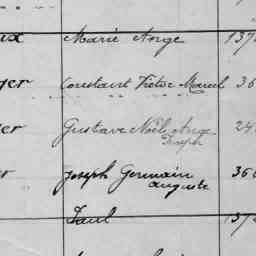 ux Marie Ange 137
ger Constant Victor Marcel 36
er Gustave Noël Ange 24
Joseph
r Joseph Germain 36
auguste
Paul 137